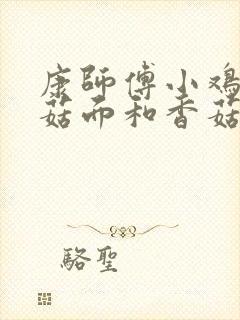 康師傅小鸡
菇而和香菇
駱聖